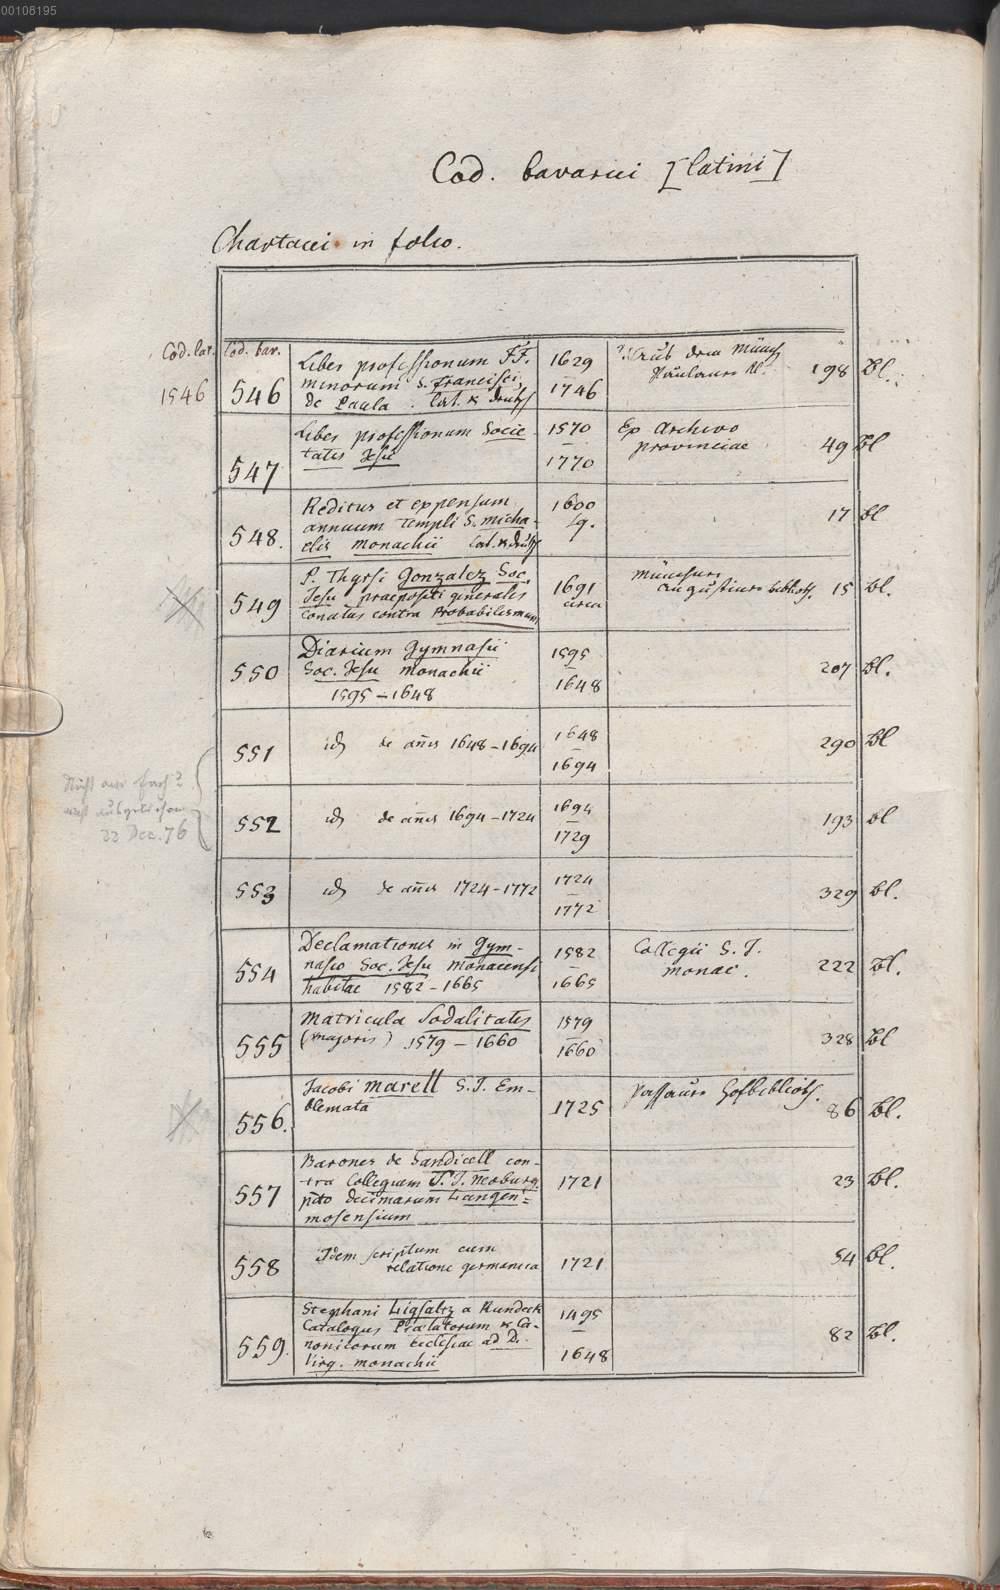 00108195
Cod. bavarici [latini]
Chartacei in folio.
Cod. lat. Cod. bav.
1546 546 Liber professionum FF.
minorum S. Francisci,
de Paula. lat. & deutsch 1629
–
1746 Aus dem Münch
Paulaner Kl. 198 Bl.
547 Liber professionum Socie-
tatis Jesu 1570
–
1770 Ex Archivo
provinciae 49 Bl
548. Reditus et expensum
annuum templi S. Micha-
elis Monachii lat. & deutsch 1600
sq. 17 bl
549 P. Thyrsi Gonzalez Soc.
Jesu praepositi generales
conatus contra Probabilismum 1691
circa Münchner
Augustiner biblioth. 15 bl.
550 Diarium Gymnasii
Soc. Jesu Monachii
1595 – 1648 1595
–
1648 207 bl.
551 id de añis 1648 – 1694 1648
–
1694 290 Bl
552 id de añis 1694 – 1724 1694
–
1729 193 bl
22 Dec. 76
553 id de añis 1724 – 1772 1724
–
1772 329 bl.
554 Declamationes in Gym-
nasio Soc. Jesu Monacensi
habitae 1582 – 1665 1582
–
1665 Collegii S. J.
Monac. 222 Bl.
555 Matricula Sodalitatis
(majoris) 1579 – 1660 1579
–
1660 328 Bl
556. Jacobi Marell S. J. Em-
blemata 1725 Passauer Hofbiblioth. 86 Bl.
557 Barones de Sandicell con-
tra Collegium S. J. Neoburg.
pcto decimarum Langen-
mosensium 1721 23 Bl.
558 Idem scriptum cum
relatione germanica 1721 54 Bl.
559. Stephani Ligsaltz a Rundeck
Catalogus Praelatorum & Ca-
nonicorum Ecclesiae ad D.
Virg. Monachii 1495
–
1648 82 Bl.